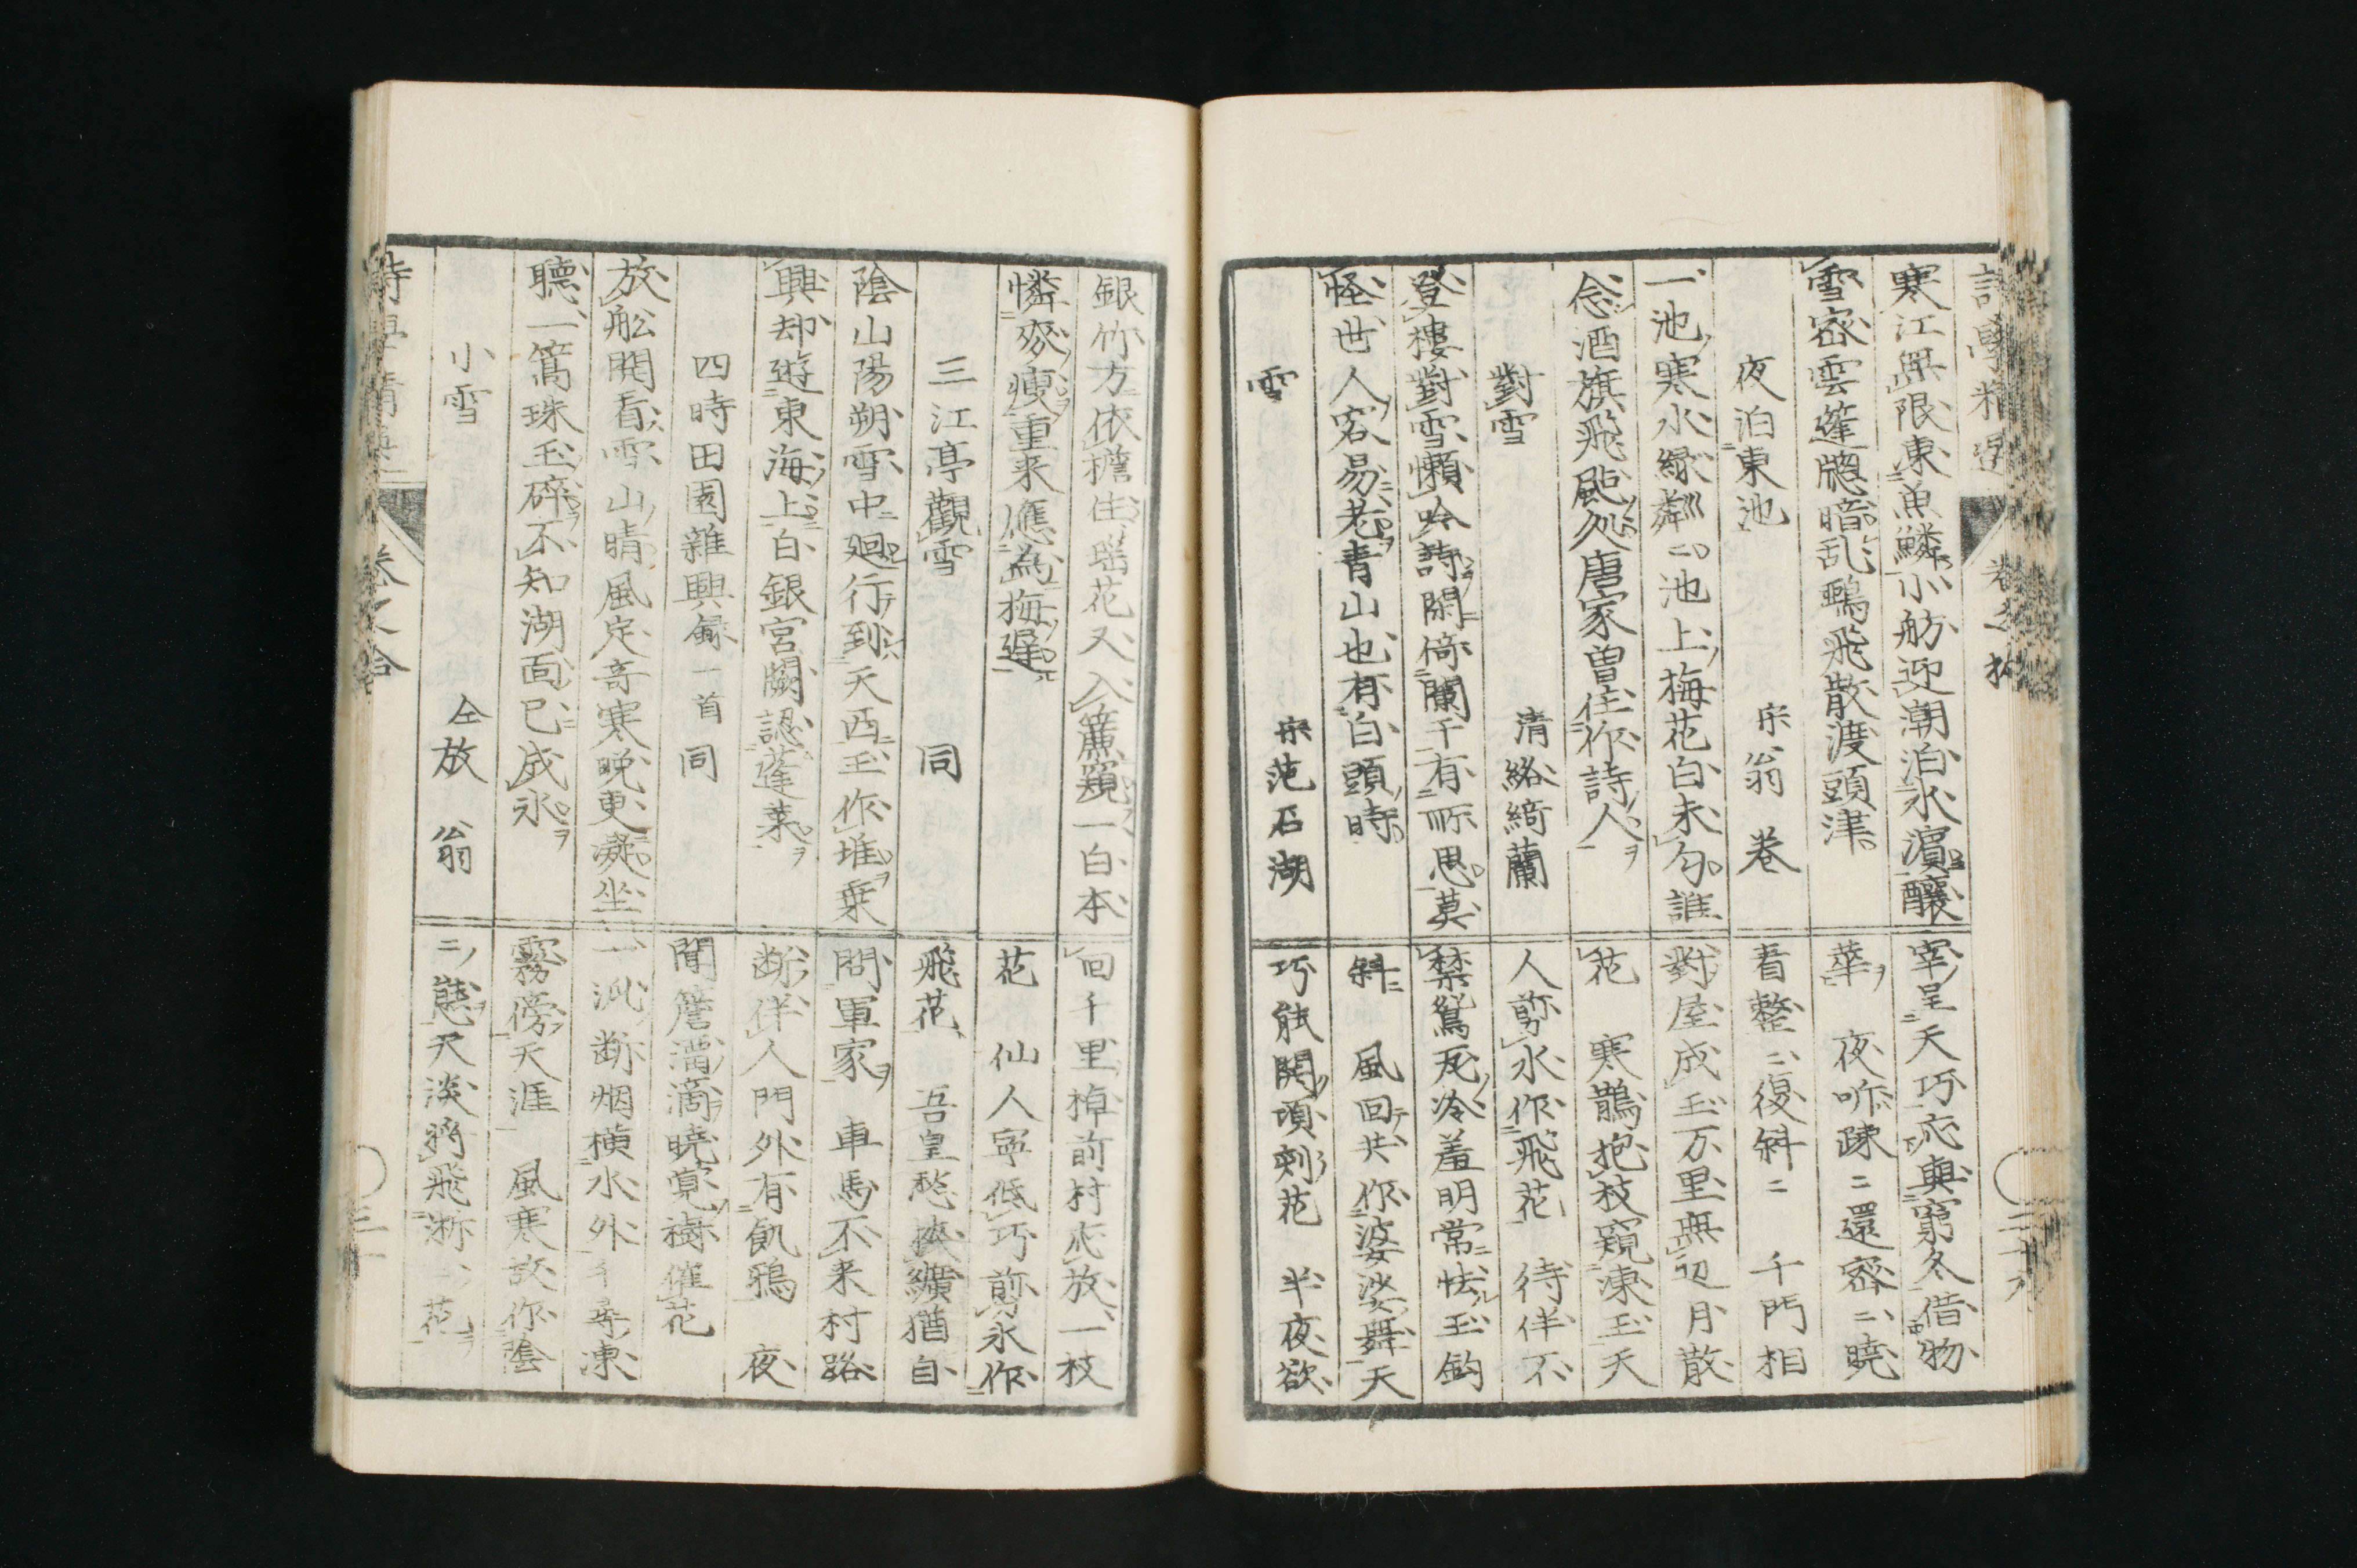 寒江無限凍魚鱗小舫迎潮泊水濵釀
雪密雲篷牕暗乱鴉飛散渡頭津
夜泊東池
宋翁 卷
一池寒水緑粼二池上梅花白未匀誰
念酒旗飛颭処唐家曽住作詩人
對雪
清絡綺蘭
登樓對雪懶吟詩閑倚闌干有所思莫
怪世人容易老青山也有白頭時
雪
宋范石湖
宰呈天巧忘與窮冬借物
華 夜听踈二還密二暁
看整二復斜二 千門相
對屋成玉万里無辺月散
花 寒鵲抱枝窺凍玉天
人剪水作飛花 待伴不
禁鴛瓦冷羞明常怯玉鈎
斜 風回共作婆娑舞天
巧能開頃刻花 半夜欲
銀竹方依檐住瑶花又入簾窺一白本
憐麥瘦重来應為梅遲
三江亭觀雪
同
陰山陽朔雪中廻行到天西玉作堆乗
興却遊東海上白銀宮闕認蓬莱
四時田園雜興録一首 同
放舩開看雪山晴風定奇寒晩更凝坐
聴一篙珠玉碎不知湖面已成氷
小雪
仝放 翁
回千里棹前村忘放一枝
花 仙人寧低巧剪氷作
飛花 吾皇愁挾纊猶自
問軍家 車馬不来村路
断伴人門外有飢鴉 夜
聞簷溜滴暁覚樹催花
一派断烟横水外 尋凍
霧傍天涯 風寒許作陰
二態天淡踌飛淅二花